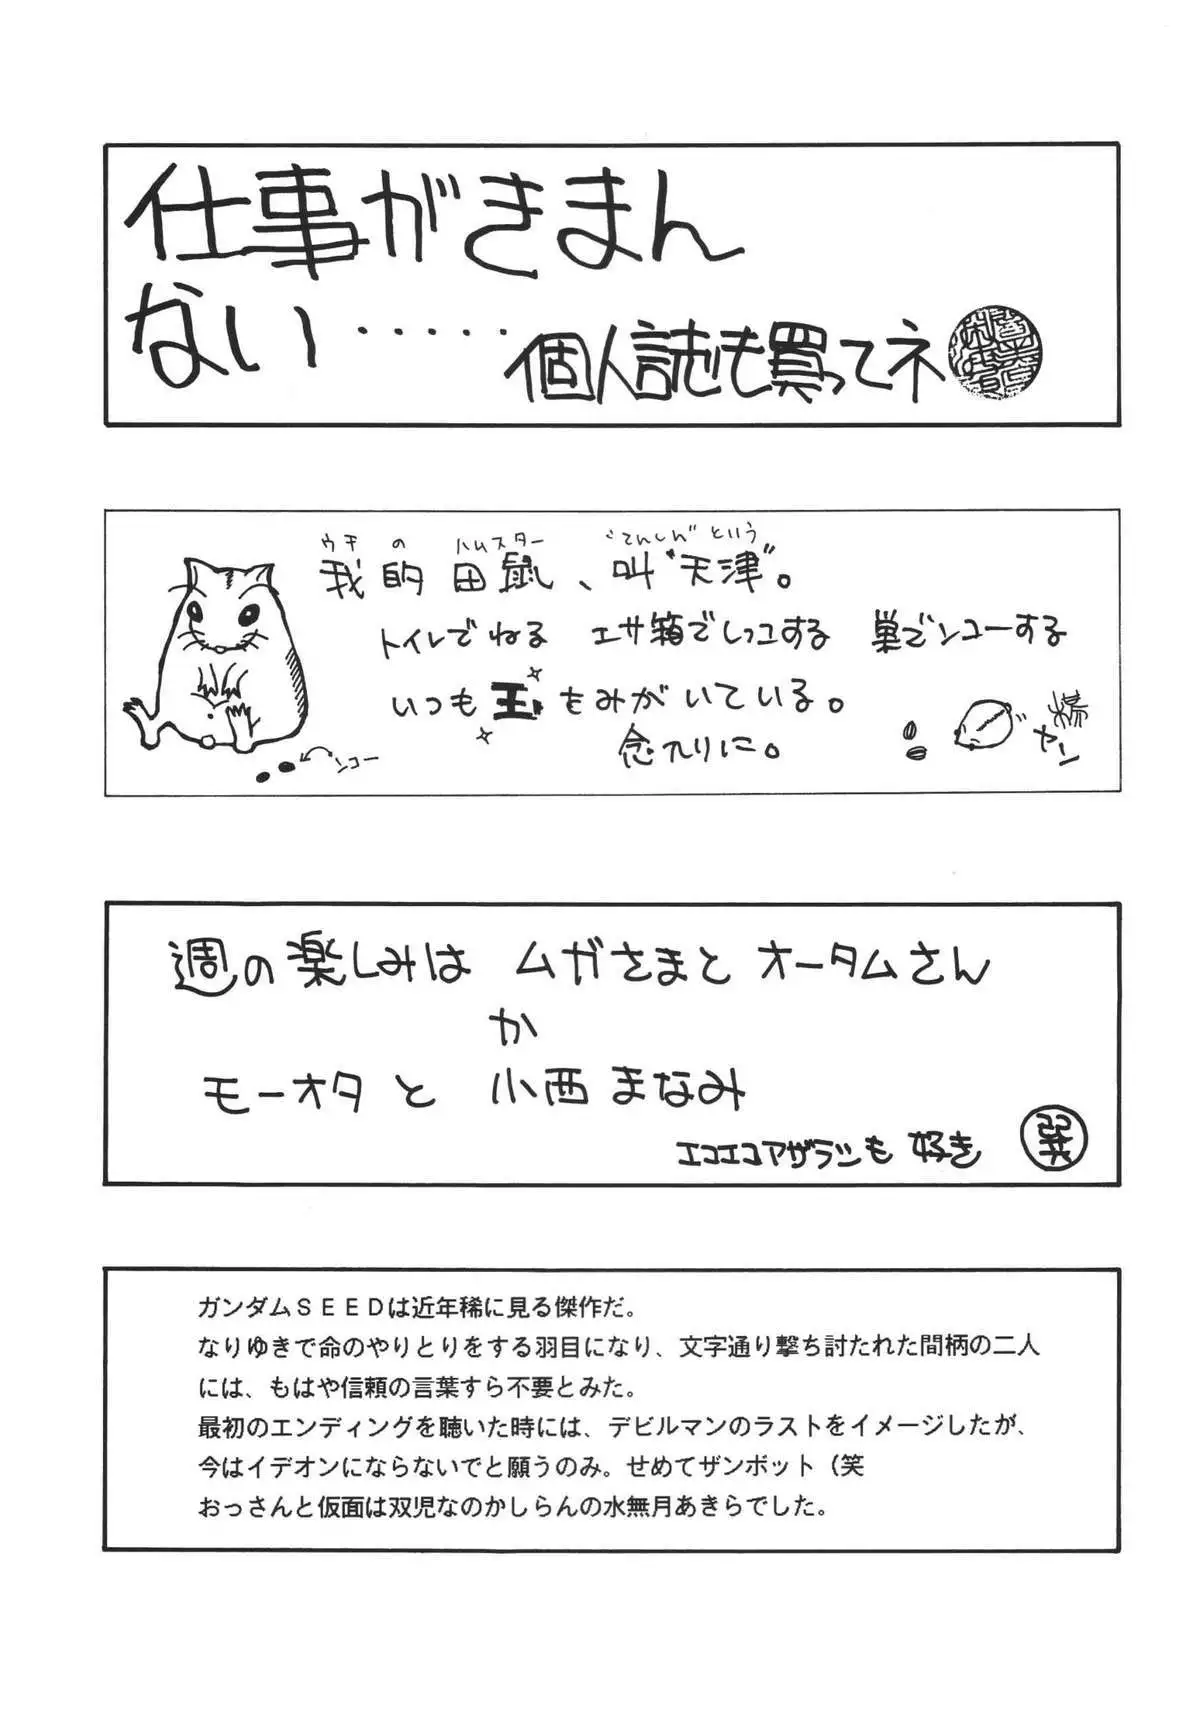 仕事がきまん
ない・・・・・
個人誌も買ってネ
ウチ の ハムスター "てんしん"という
我的 田鼠、叫"天津"。
トイレでねる エサ箱でしっコする 巣でンコーする
いつも玉をみがいている。
念入りに。
ンコー
楊
ヤン
週の楽しみは ムガさまと オータムさん
か
モーオタ と 小西 まなみ
エコエコアザラシも 好き
巽
ガンダムＳＥＥＤは近年稀に見る傑作だ。
なりゆきで命のやりとりをする羽目になり、文字通り撃ち討たれた間柄の二人
には、もはや信頼の言葉すら不要とみた。
最初のエンディングを聴いた時には、デビルマンのラストをイメージしたが、
今はイデオンにならないでと願うのみ。せめてザンボット（笑
おっさんと仮面は双児なのかしらんの水無月あきらでした。